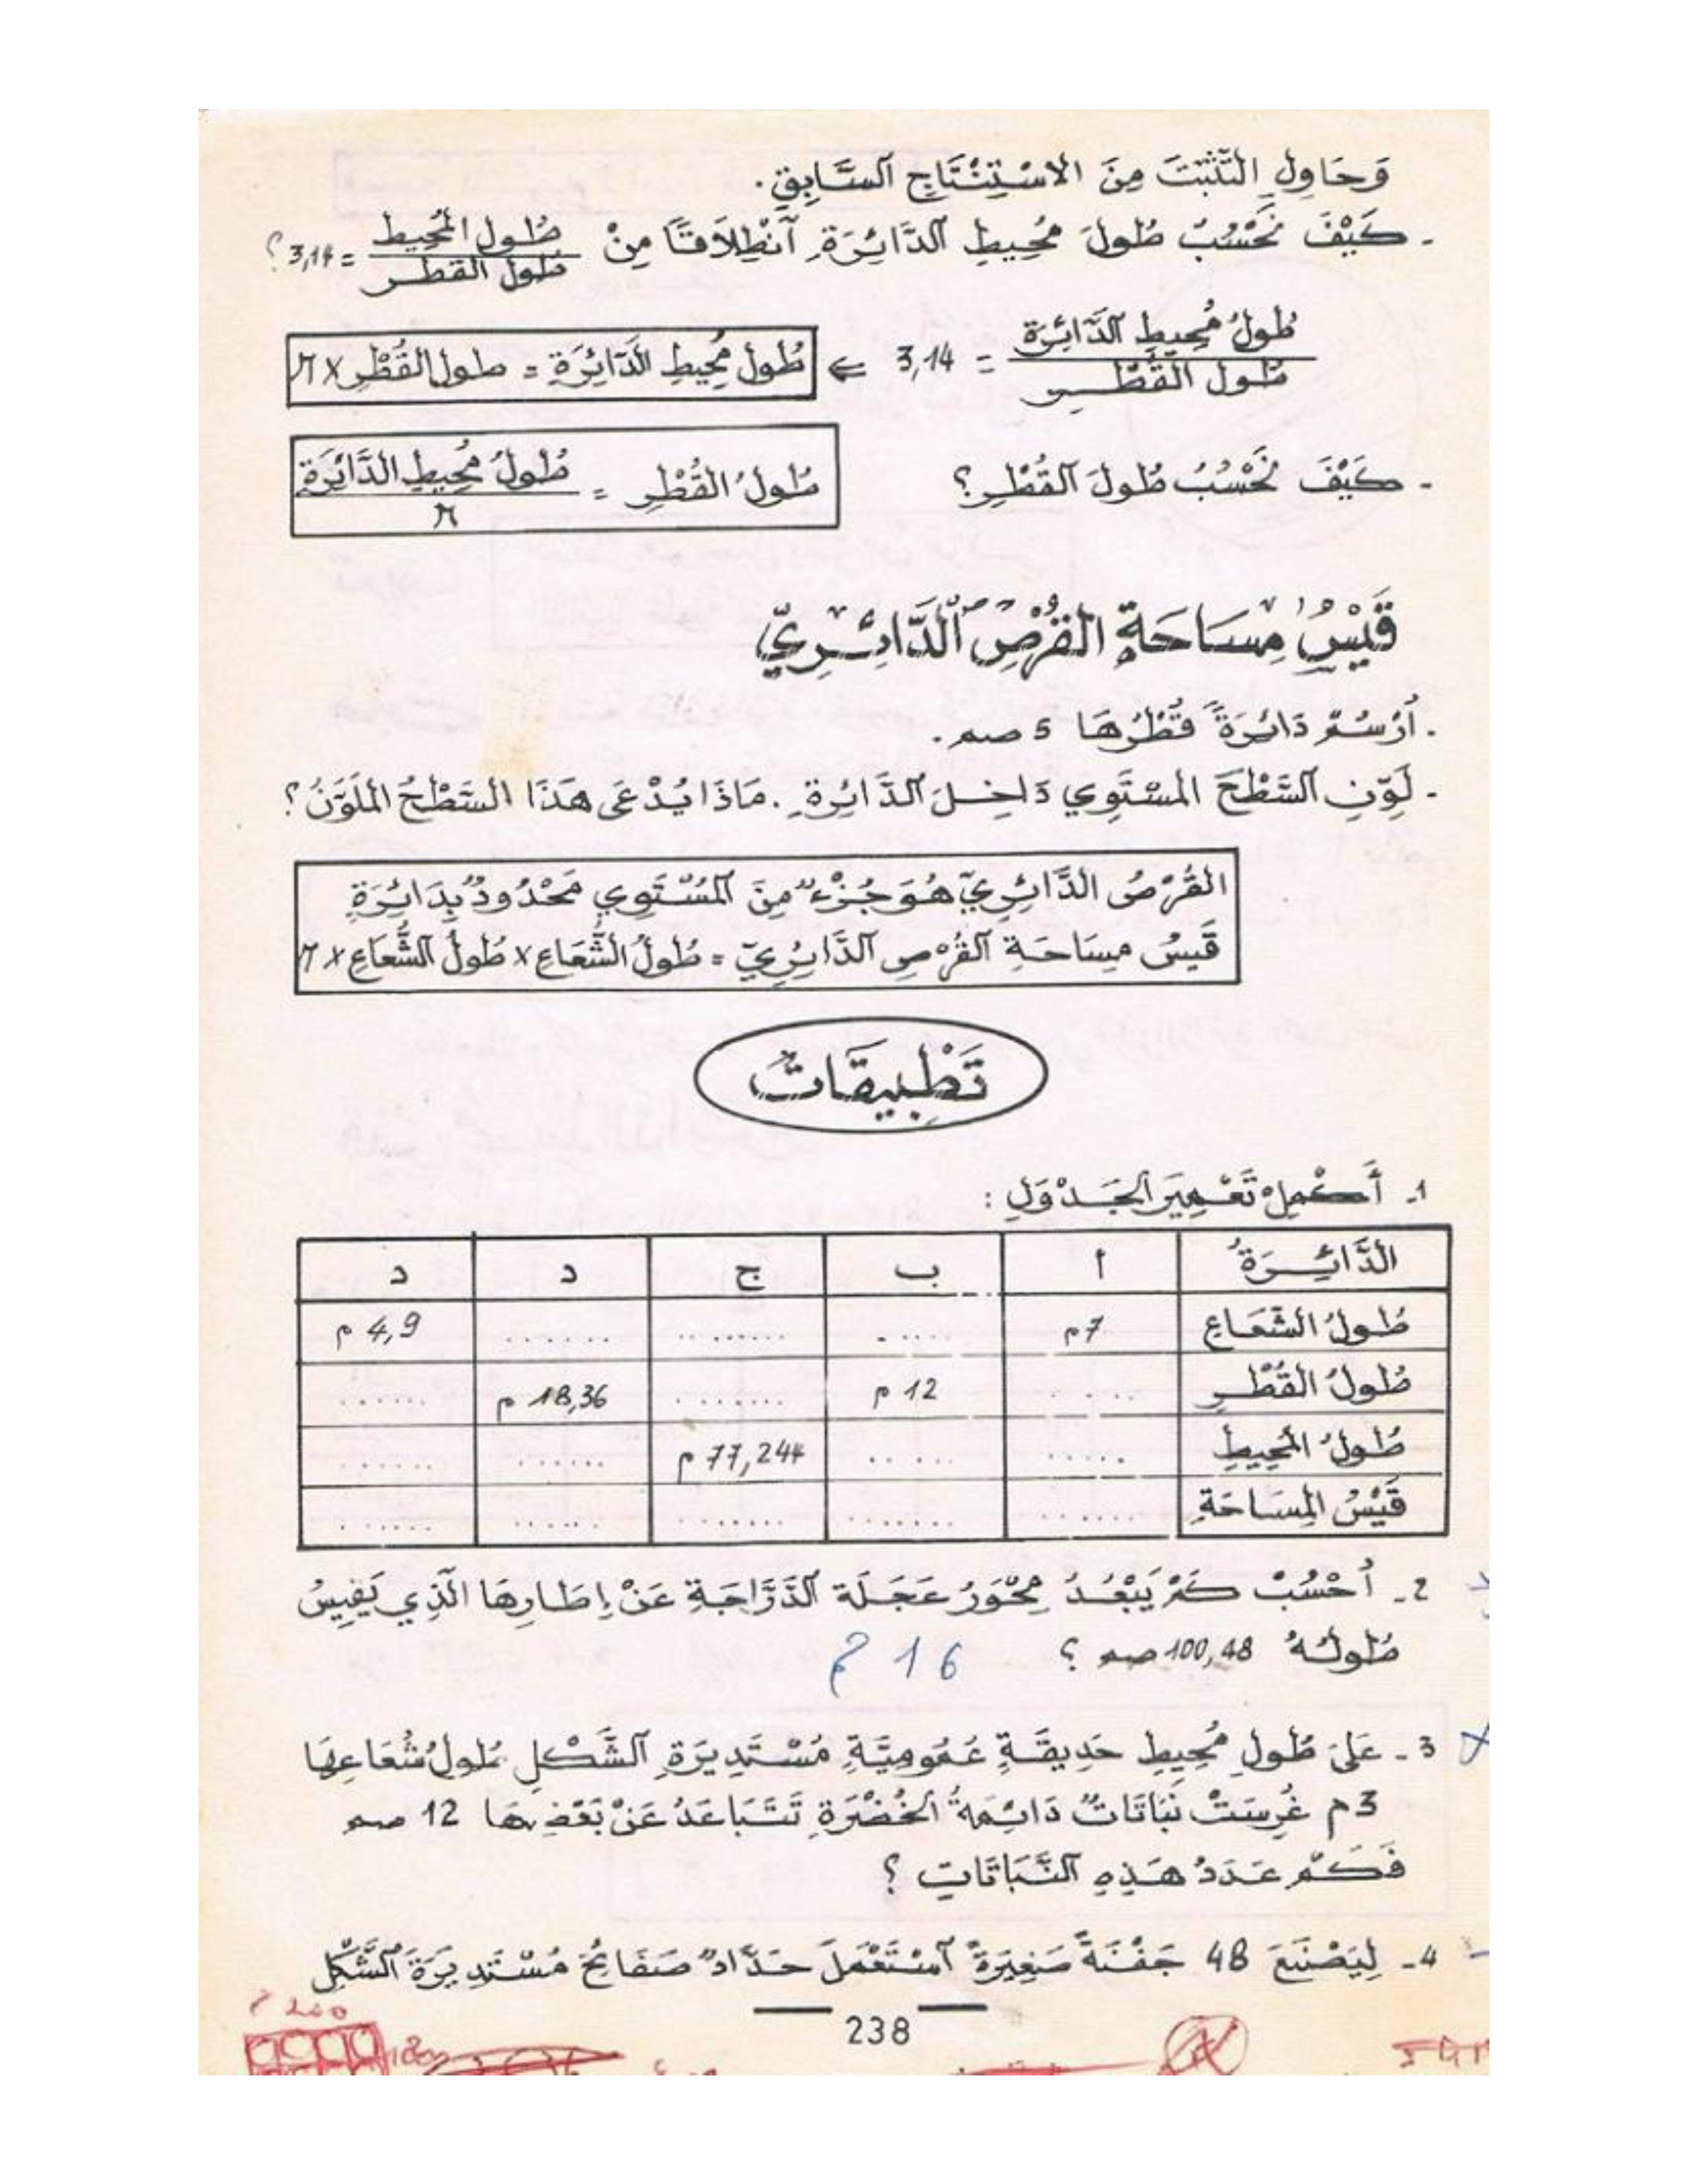 وَحَاوِلِ التَّثَبُّتَ مِنَ الاسْتِنْتَاجِ السَّابِقِ.
- كَيْفَ نَحْسُبُ طُولَ مُحِيطِ الدَّائِرَةِ اَنْطِلاَقًا مِنْ طول المُحيط / طول القطر = 3,14 ؟
طُولُ مُحِيطِ الدَّائِرَة / طُول القُطْر = 3,14 ⇐ طُولُ مُحِيطِ الدَّائِرَةِ = طول القُطْرِ × π
- كَيْفَ نَحْسُبُ طُولَ القُطْرِ؟ طُولُ القُطْرِ = طُولُ مُحِيطِ الدَّائِرَةِ / π
قَيْسُ مِسَاحَةِ القُرْصِ الدَّائِرِيِّ
. اُرْسُمْ دَائِرَةً قُطْرُهَا 5 صم.
- لَوِّنِ السَّطْحَ المُسْتَوِي دَاخِلَ الدَّائِرَةِ. مَاذَا يُدْعَى هَذَا السَّطْحُ المُلَوَّنُ؟
القُرْصُ الدَّائِرِيّ هُوَ جُزْءٌ مِنَ المُسْتَوِي مَحْدُودٌ بِدَائِرَةٍ
قَيْسُ مِسَاحَةِ القُرْصِ الدَّائِرِيّ = طُولُ الشُّعَاعِ × طُولُ الشُّعَاعِ × π
تَطْبِيقَاتٌ
1- أَكْمِلْ تَعْمِيرَ الجَدْوَلِ :
الدَّائِرَةُ أ ب ج د د
طُولُ الشُّعَاعِ 7م ..... ........ ....... 4,9 م
طُولُ القُطْرِ .... 12 م ....... 18,36 م ......
طُولُ المُحِيطِ ..... ..... 77,244 م ...... ......
قَيْسُ المِسَاحَةِ ...... ....... ....... ...... ......
2- اُحْسُبْ كَمْ يَبْعُدُ مِحْوَرُ عَجَلَةِ الدَّرَّاجَةِ عَنْ إِطَارِهَا الَّذِي يَقِيسُ
طُولُهُ 100,48 صم ؟ 16
3- عَلَى طُولِ مُحِيطِ حَدِيقَةٍ عُمُومِيَّةٍ مُسْتَدِيرَةِ الشَّكْلِ طُولُ شُعَاعِهَا
3م غُرِسَتْ نَبَاتَاتٌ دَائِمَةُ الخُضْرَةِ تَتَبَاعَدُ عَنْ بَعْضِهَا 12 صم
فَكَمْ عَدَدُ هَذِهِ النَّبَاتَاتِ ؟
4- لِيَصْنَعَ 48 جَفْنَةً صَغِيرَةً اسْتَعْمَلَ حَدَّادٌ صَفَائِحَ مُسْتَدِيرَةَ الشَّكْلِ
238